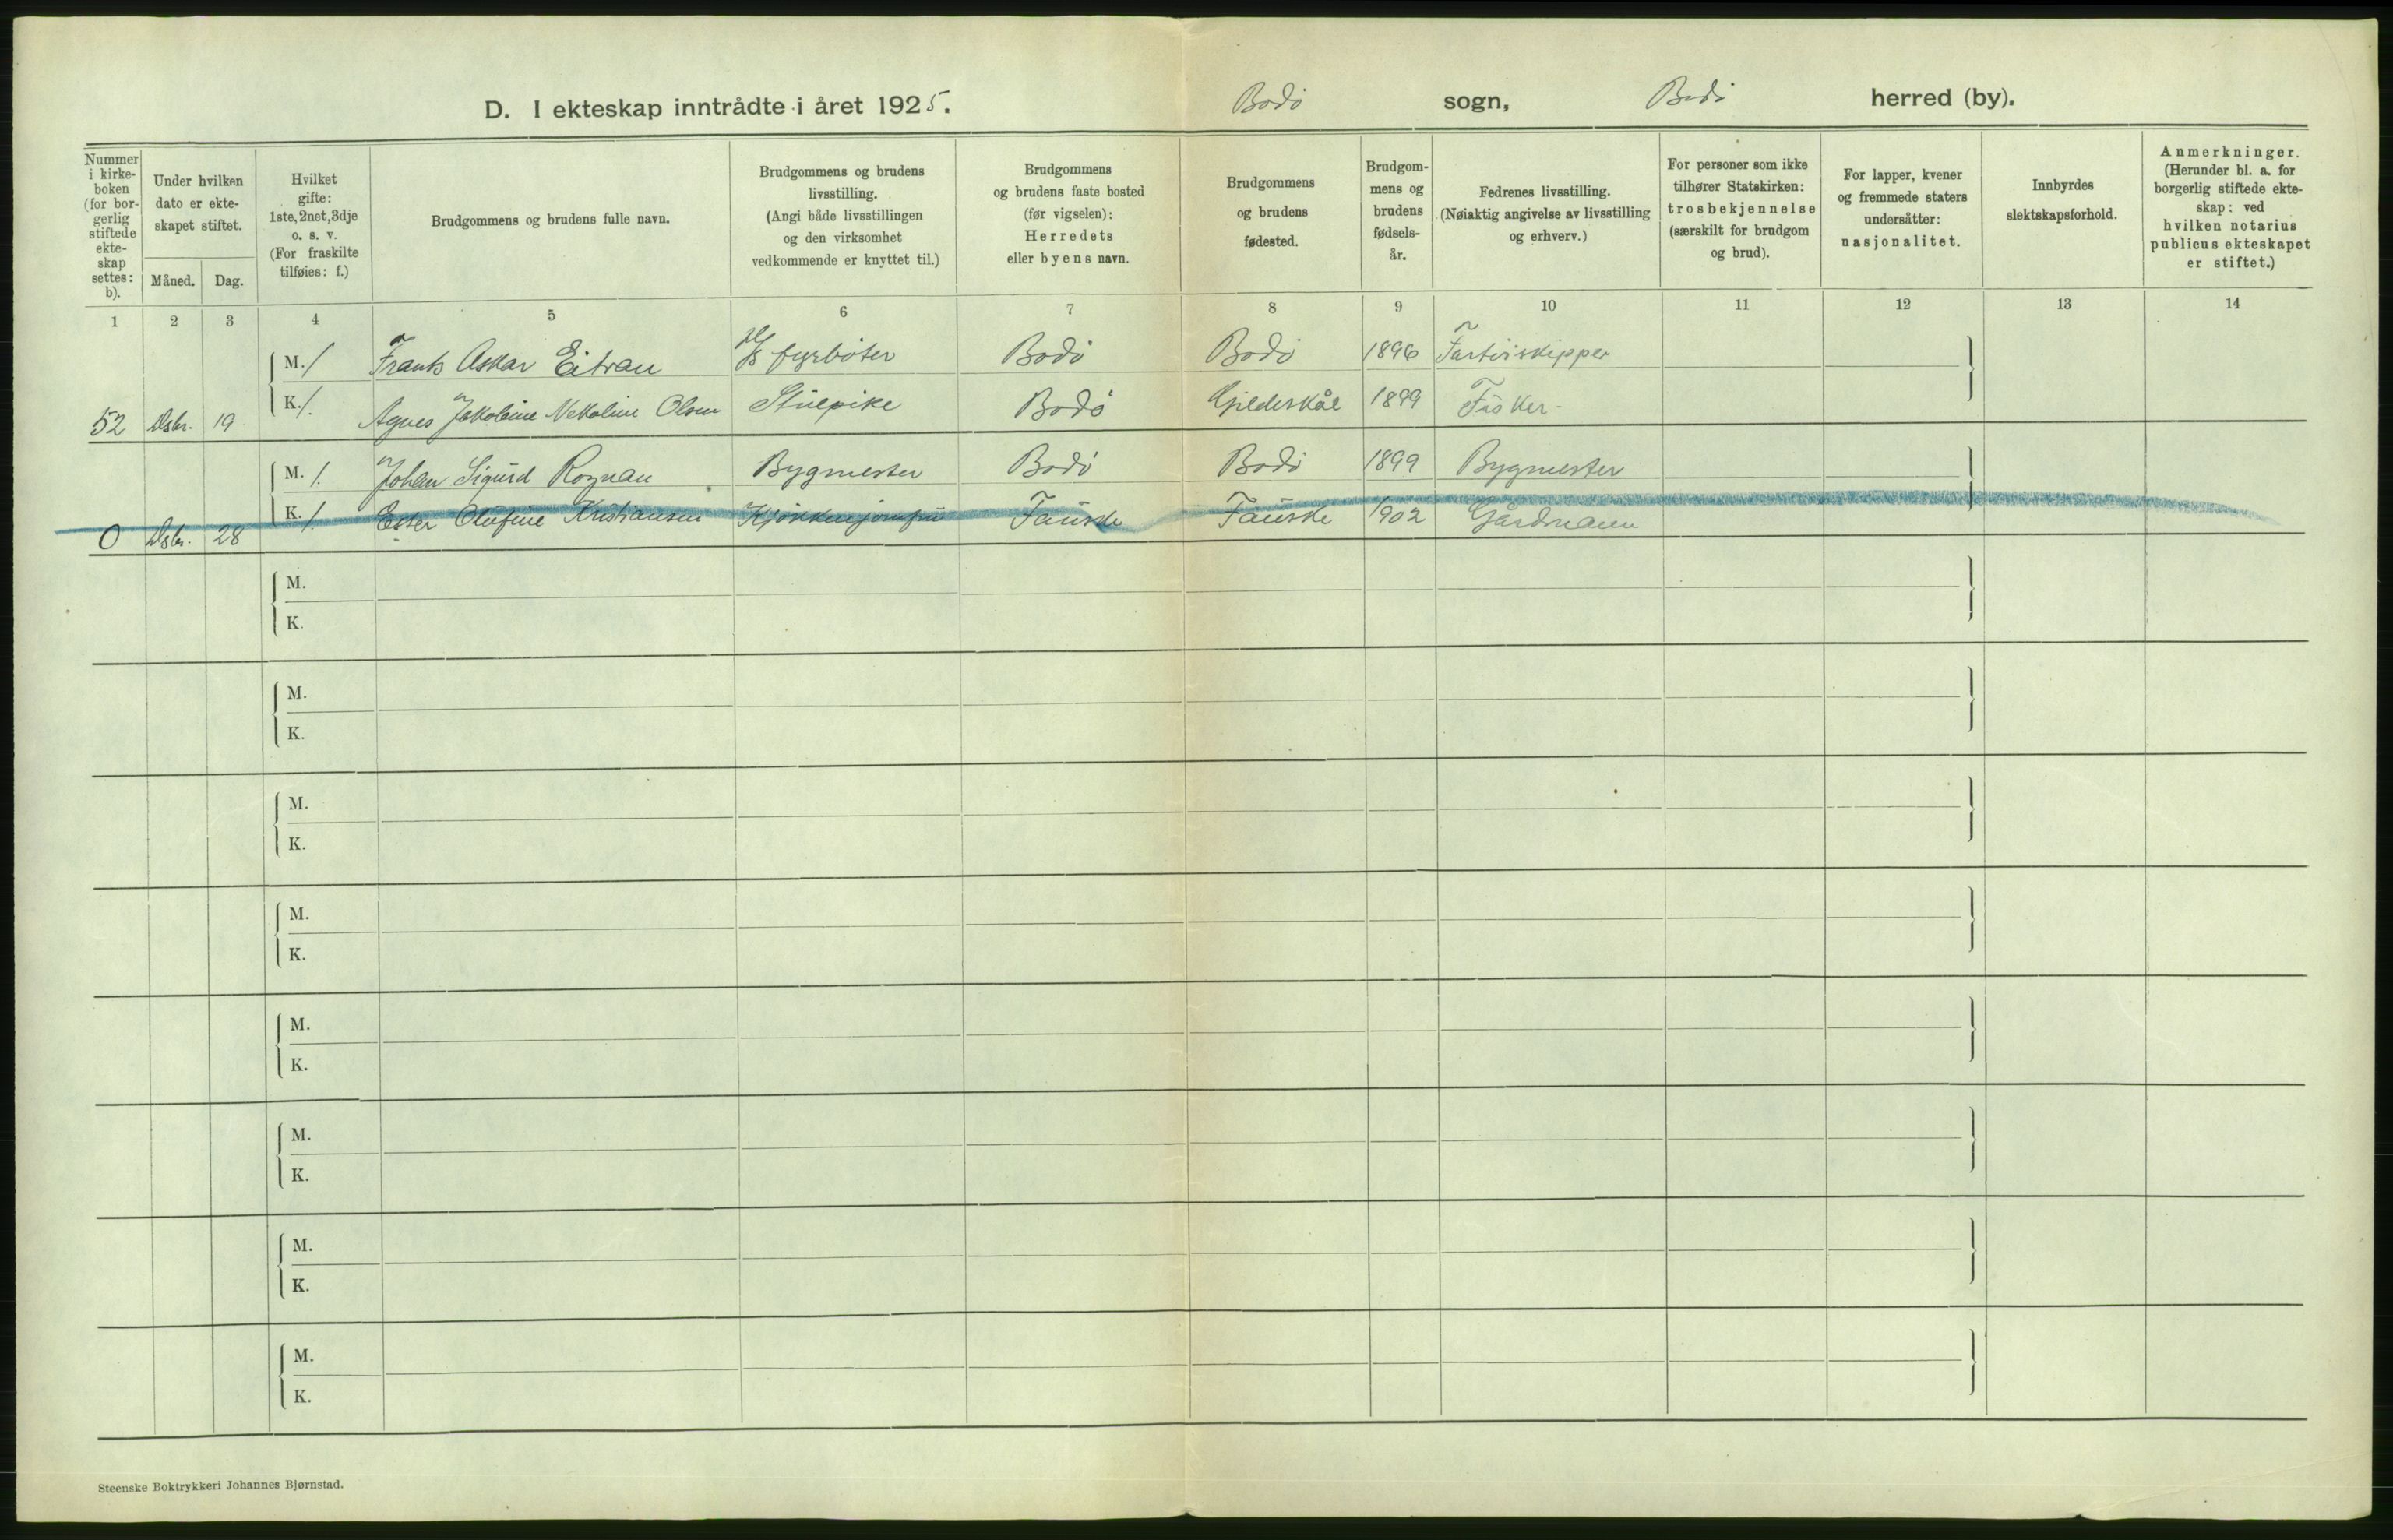 D. I ekteskap inntrådte i året 1925. Bodø sogn, Bodø herred (by).
Nummer
i kirke-
boken
(for bor-
gerlig
stiftede
ekte-
skap
settes:
b).
Under hvilken
dato er ekte-
skapet stiftet.
Måned. Dag.
Hvilket
gifte:
1ste, 2net, 3dje
o. s. v.
(For fraskilte
tilføies: f.)
Brudgommens og brudens fulle navn.
Brudgommens og brudens
livsstilling.
(Angi både livsstillingen
og den virksomhet
vedkommende er knyttet til.)
Brudgommens
og brudens faste bosted
(før vigselen):
Herredets
eller byens navn.
Brudgommens
og brudens
fødested.
Brudgom-
mens og
brudens
fødsels-
år.
Fedrenes livsstilling.
(Nøiaktig angivelse av livsstilling
og erhverv.)
For personer som ikke
tilhører Statskirken:
trosbekjennelse
(særskilt for brudgom
og brud).
For lapper, kvener
og fremmede staters
undersåtter:
nasjonalitet.
Innbyrdes
slektskapsforhold.
Anmerkninger.
(Herunder bl. a. for
borgerlig stiftede ekte-
skap: ved
hvilken notarius
publicus ekteskapet
er stiftet.)
1 2 3 4 5 6 7 8 9 10 11 12 13 14
M. 1 Frants Oskar Eitran fyrbøter Bodø Bodø 1896 Fartøiskipper
52 Dsbr. 19 K. 1. Agnes Jakobine Olsen Stuepike Bodø Gildeskål 1899 Fisker
M. 1. Johan Sigurd Rognan Bygmester Bodø Bodø 1899 Bygmester
0 Dsbr. 28 K. 1 Ester Olufine Kristiansen Kjøkkenjomfru Fauske Fauske 1902 Gårdmann
M.
K.
M.
K.
M.
K.
M.
K.
M.
K.
M.
K.
M.
K.
M.
K.
Steenske Boktrykkeri Johannes Bjørnstad.